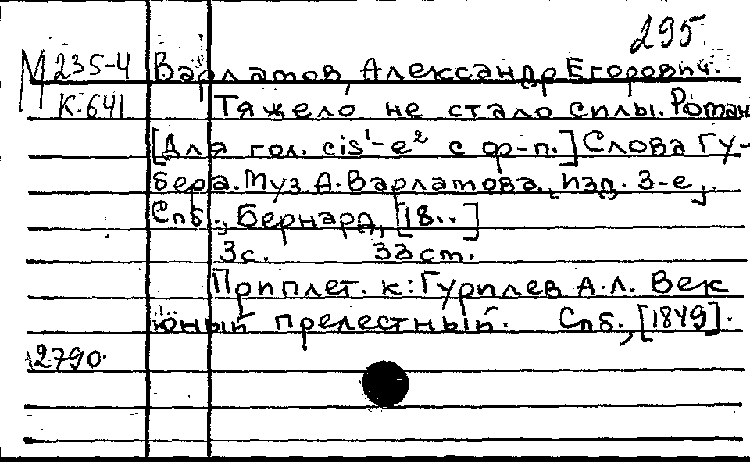 295
М 235-4 Варламов, Александр Егорович.
К-641 Тяжело не стало силы. Роман
[Для гол. cis¹-e² с ф-п.] Слова Гу-
бера. Муз А. Варламова. Изд. 3-е,
Спб., Бернард, [18..]
3с.
Приплет. к: Гурилев А.Л. Век
юный прелестный. Спб., [1849].
2790.